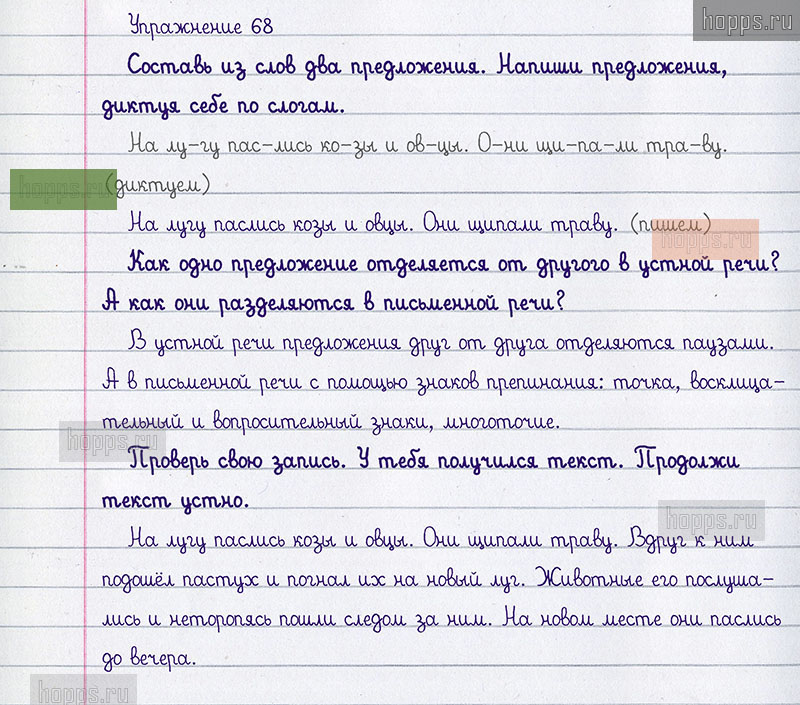 Упражнение 68
hopps.ru
Составь из слов два предложения. Напиши предложения,
диктуя себе по слогам.
На лу-гу пас-лись ко-зы и ов-цы. О-ни щи-па-ли тра-ву.
hopps.ru
(диктуем)
На лугу паслись козы и овцы. Они щипали траву. (пишем)
hopps.ru
Как одно предложение отделяется от другого в устной речи?
А как они разделяются в письменной речи?
В устной речи предложения друг от друга отделяются паузами.
А в письменной речи с помощью знаков препинания: точка, восклица-
тельный и вопросительный знаки, многоточие.
hopps.ru
Проверь свою запись. У тебя получился текст. Продолжи
текст устно.
hopps.ru
На лугу паслись козы и овцы. Они щипали траву. Вдруг к ним
подошёл пастух и погнал их на новый луг. Животные его послуша-
лись и неторопясь пошли следом за ним. На новом месте они паслись
до вечера.
hopps.ru